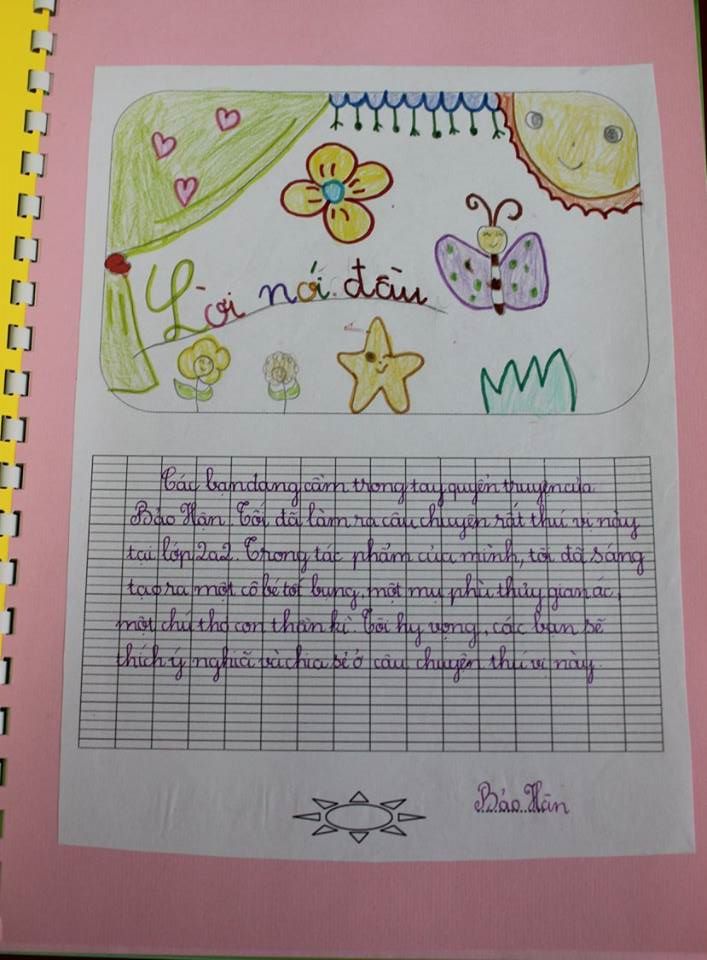 Lời nói đầu
Các bạn đang cầm trong tay quyển truyện của
Bảo Hân. Tôi đã làm ra câu chuyện rất thú vị này
tại lớp 2a2. Trong tác phẩm của mình, tôi đã sáng
tạo ra một cô bé tốt bụng, một mụ phù thủy gian ác,
một chú thỏ con thần kì. Tôi hy vọng, các bạn sẽ
thích ý nghĩa và chia sẻ ở câu chuyện thú vị này.
Bảo Hân